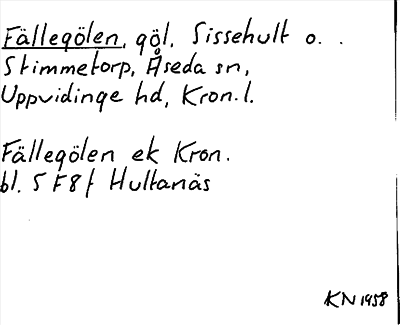 Fällegölen, göl, Sissehult o. .
Stimmetorp, Åseda sn,
Uppvidinge hd, Kron. l.
Fällegölen ek Kron.
bl. 5 F 8 f Hultanäs
KN 1958